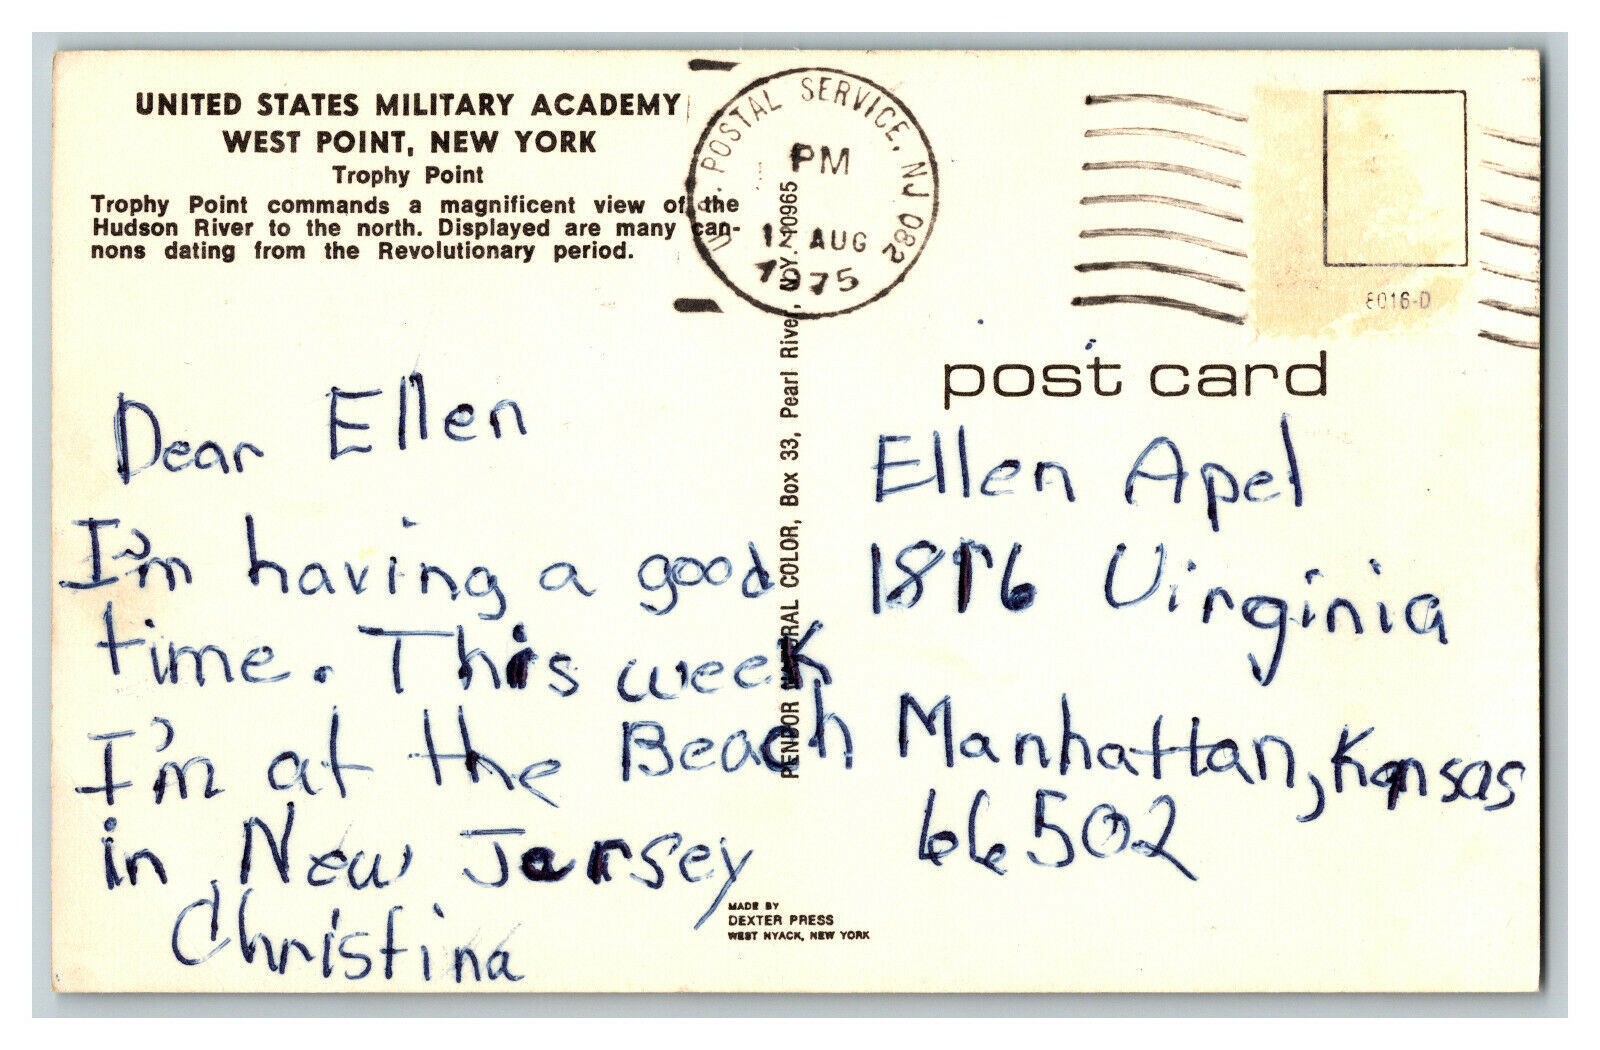 UNITED STATES MILITARY ACADEMY
WEST POINT, NEW YORK
Trophy Point
Trophy Point commands a magnificent view of the
Hudson River to the north. Displayed are many can-
nons dating from the Revolutionary period.
U.S. POSTAL SERVICE, NJ 082
PM
AUG
1975
8016-D
post card
Dear Ellen
I'm having a good
time. This week
I'm at the Beach
in New Jersey
Christina
PENDOR NATURAL COLOR, Box 33, Pearl River, N.Y. 10965
Ellen Apel
1876 Virginia
Manhattan, Kansas
66502
MADE BY
DEXTER PRESS
WEST NYACK, NEW YORK